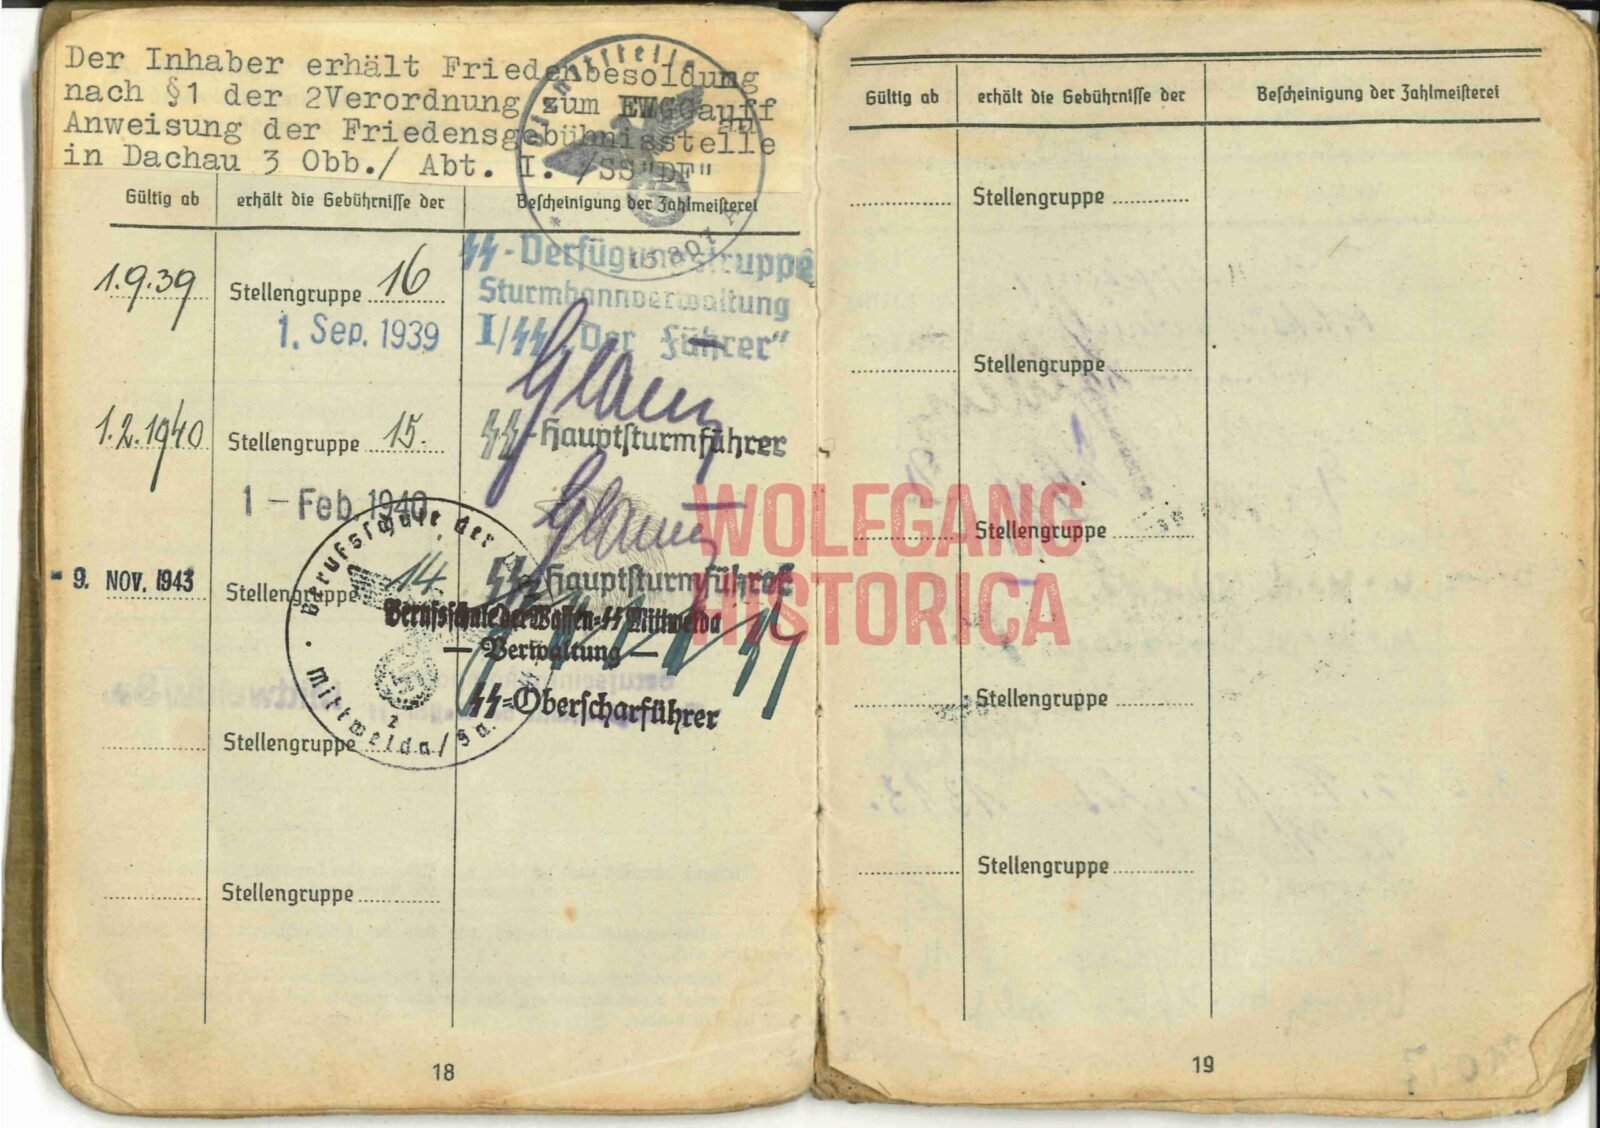 Der Inhaber erhält Friedenbesoldung
nach §1 der 2Verordnung zum EWGGauff
an
Anweisung der Friedensgebühnisstelle
in Dachau 3 Obb./ Abt. I. /SS"DF"
Gültig ab erhält die Gebührnisse der Bescheinigung der Zahlmeisterei
15807 A
SS-Verfügungstruppe
Sturmbannverwaltung
I/SS „Der Führer"
1.9.39 Stellengruppe 16
1. Sep. 1939
1.2.1940 Stellengruppe 15.
SS-Hauptsturmführer
1 - Feb. 1940
- 9. NOV. 1943 Stellengruppe 14
SS-Hauptsturmführer
Berufsschule der
Mittweida/Sa.
2
Berufsschule der Waffen-SS Mittweida
— Verwaltung —
SS-Oberscharführer
Stellengruppe
Stellengruppe
18
Gültig ab erhält die Gebührnisse der Bescheinigung der Zahlmeisterei
Stellengruppe
Stellengruppe
Stellengruppe
Stellengruppe
Stellengruppe
19
WOLFGANG
HISTORICA